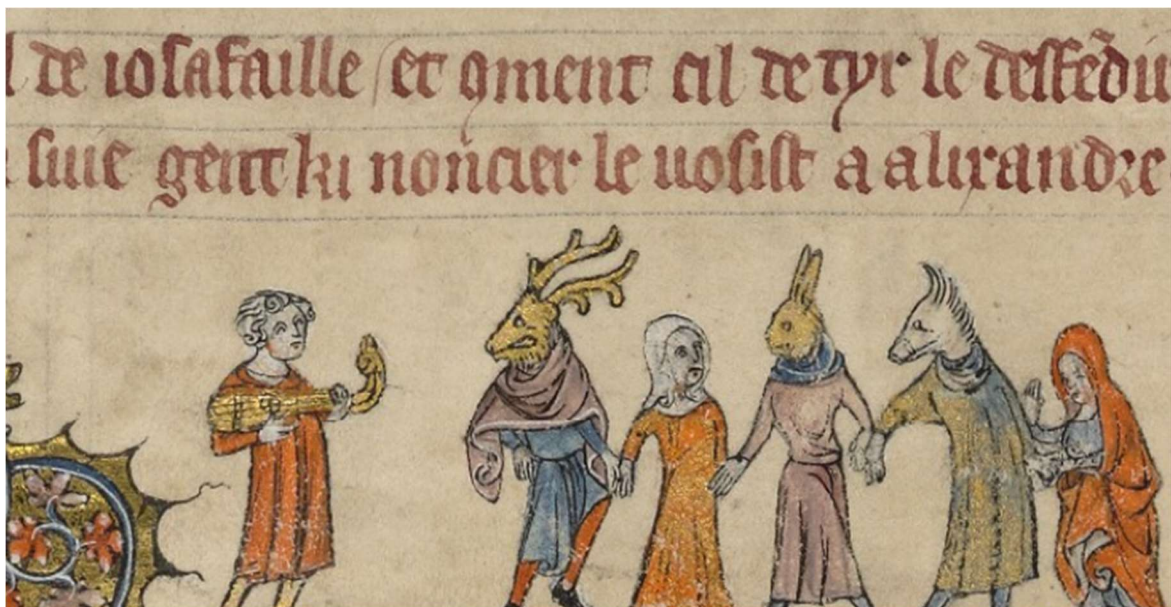 de iosafaille et qment cil de tyr le deffēdi
siue gent ki nōcier le uosist a alixandre